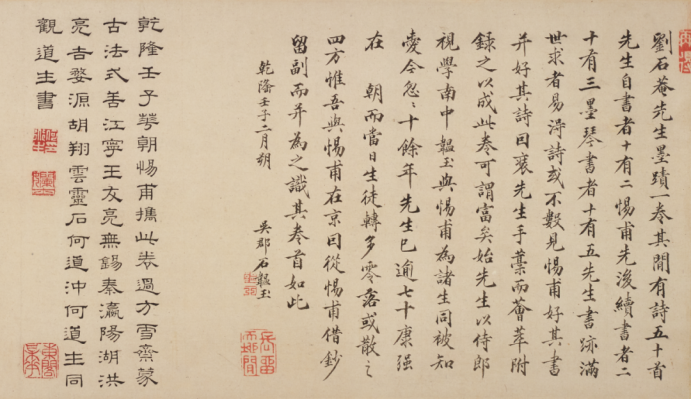 劉石菴先生墨蹟一卷其間有詩五十首
先生自書者十有二惕甫先後續書者二
十有三墨琴書者十有五先生書跡滿
世求者易得詩或不數見惕甫好其書
并好其詩因裒先生手藁而薈萃附
錄之以成此卷可謂富矣始先生以侍郎
視學南中韞玉與惕甫為諸生同被知
愛今忽〻十餘年先生已逾七十康強
在 朝而當日生徒轉多零落或散之
四方惟吾與惕甫在京因從惕甫借鈔
留副而并為之識其卷首如此
乾隆壬子二月朔 吳郡石韞玉
乾隆壬子花朝惕甫攜此卷過方雪齋蒙
古法式善江寧王友亮無錫秦瀛陽湖洪
亮吉婺源胡翔雲靈石何道沖何道生同
觀道生書